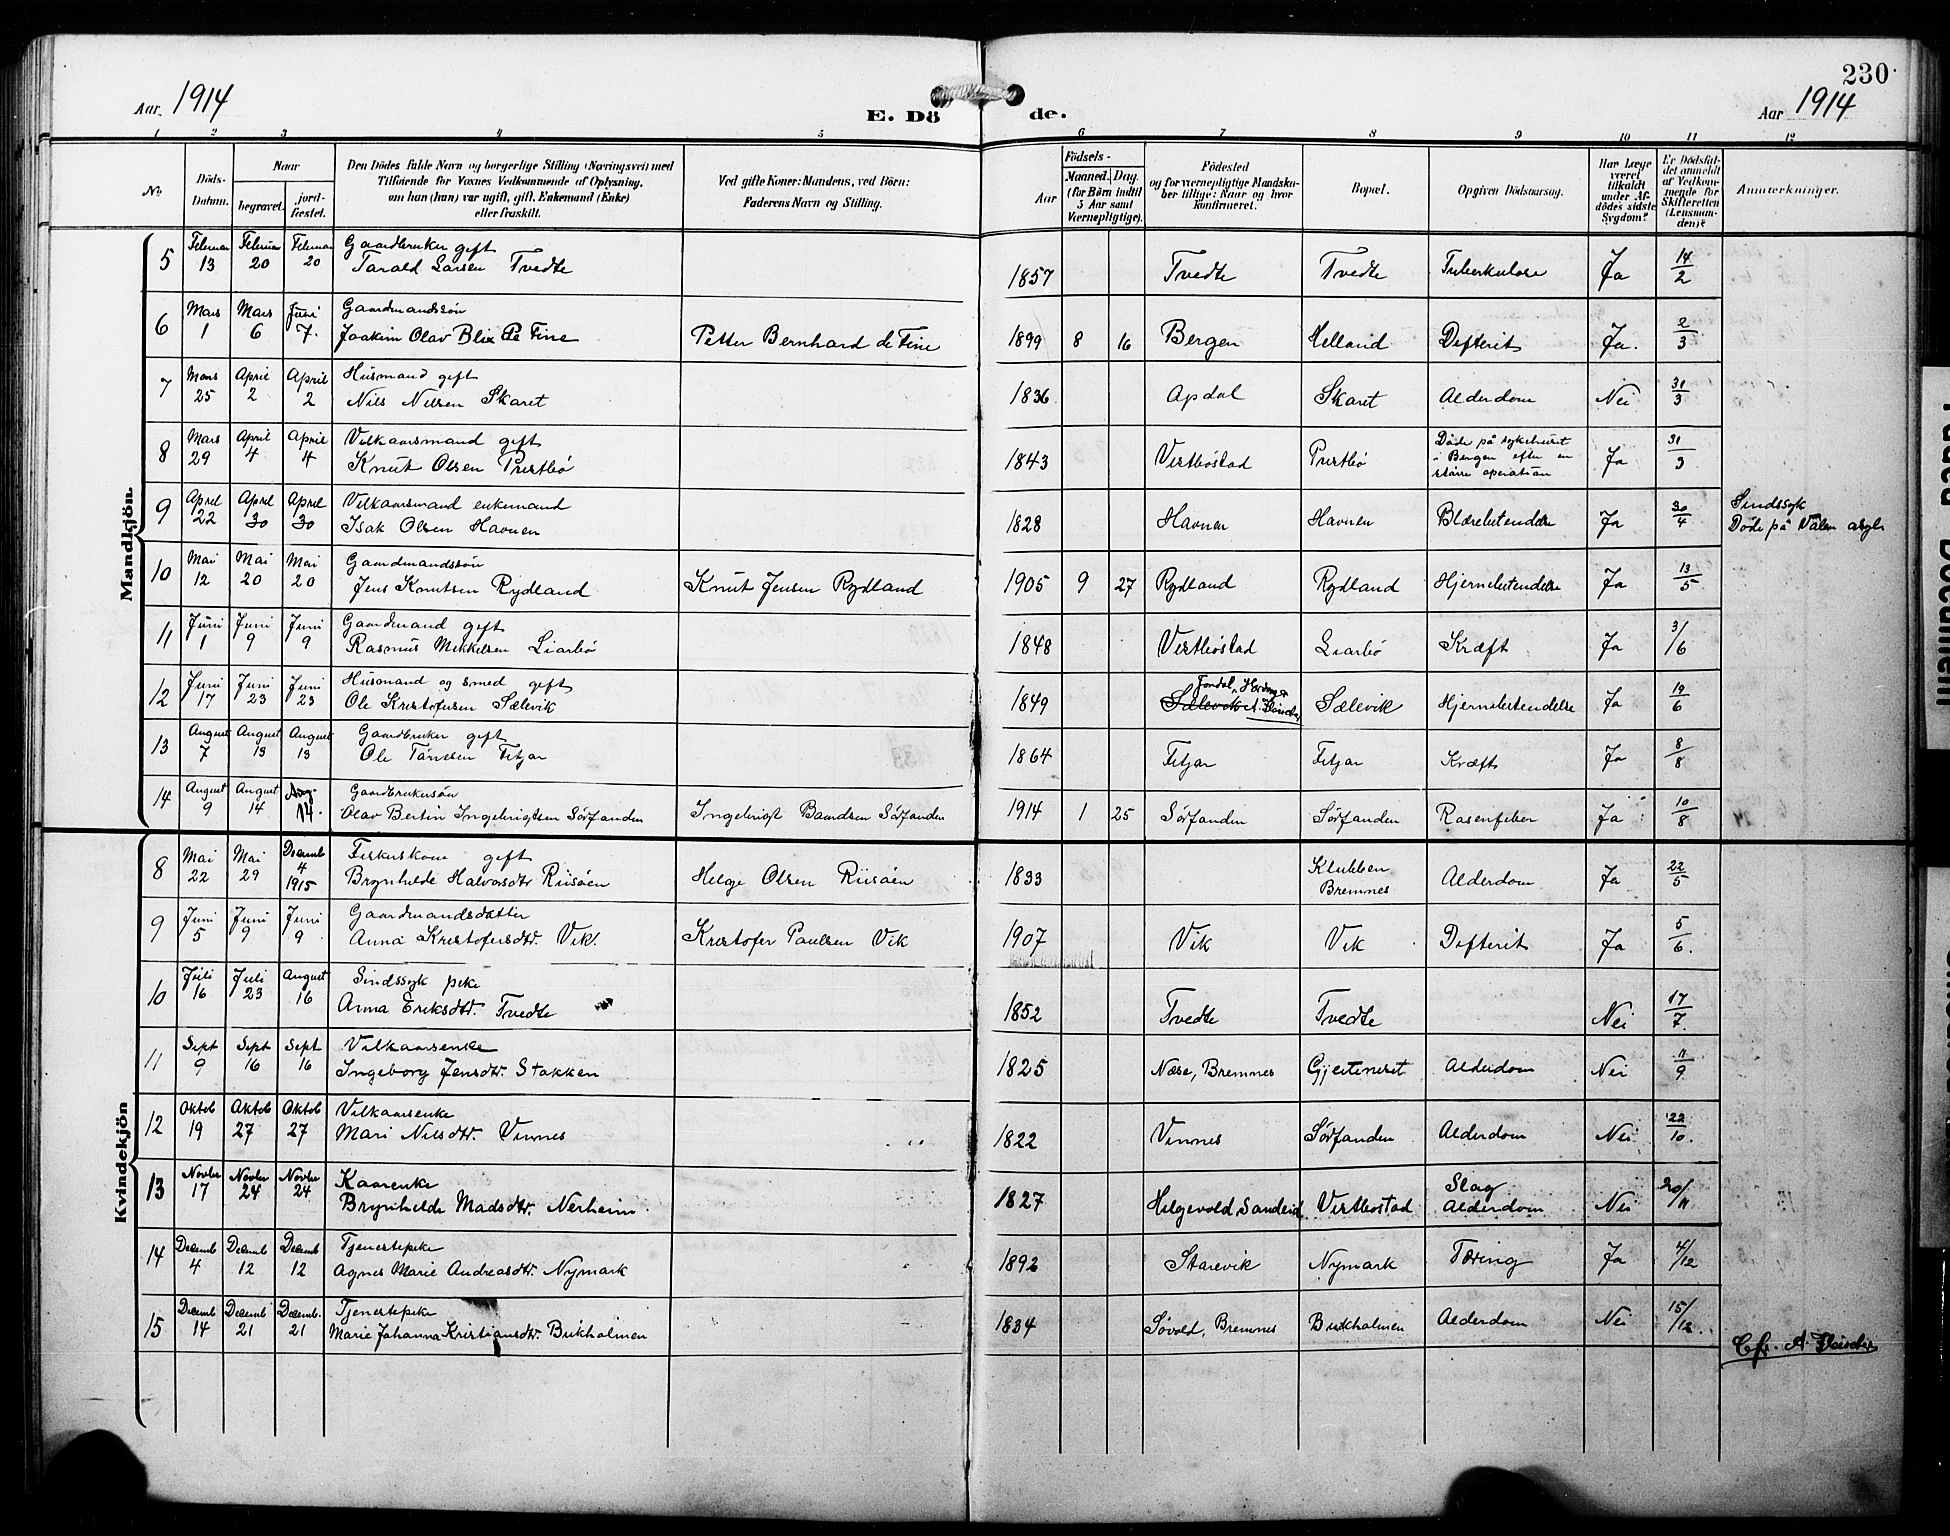 230
Aar 1914
E. Dö
de.
Aar 1914
1 2 3 4 5 6 7 8 9 10 11 12
No
Døds-Datum.
Naar
begravet.
jord-fæstet.
Den Dödes fulde Navn og borgerlige Stilling (Næringsvei) med
Tilföiende for Voxnes Vedkommende af Oplysning,
om han (hun) var ugift, gift, Enkemand (Enke)
eller fraskilt.
Ved gifte Koner: Mandens, ved Börn:
Faderens Navn og Stilling.
Födsels-
Aar
Maaned. Dag.
(for Börn indtil
5 Aar samt
Værnepligtige).
Födested
og for værnepligtige Mandska-
ber tillige: Naar og hvor
konfirmeret.
Bopæl.
Opgiven Dödsaarsag.
Har Læge
været
tilkaldt
under Af-
dödes sidste
Sygdom?
Er Dödsfal-
det anmeldt
af Vedkom-
mende for
Skifteretten
(Lensman-
den)?
Anmærkninger.
Mandkjön.
5 Februar 13 Februar 20 Februar 20 Gaardbruker gift
Tarald Larsen Tvedte 1857 Tvedte Tvedte Tuberkulose Ja 14/2
6 Mars 1 Mars 6 Juni 7. Gaardmandssön
Joakim Olav Blix de Fine Petter Bernhard de Fine 1899 8 16 Bergen Helland Difterit Ja. 2/3
7 Mars 25 April 2 April 2 Husmand gift
Nils Nilsen Skaret 1836 Apdal Skaret Alderdom Nei 31/3
8 Mars 29 April 4 April 4 Vilkaarsmand gift
Knut Olsen Prestbø 1843 Vestbøstad Prestbø Døde på sykehuset
i Bergen efter en
større operation Ja 31/3
9 April 22 April 30 April 30 Vilkaarsmand enkemand
Isak Olsen Havnen 1828 Havnen Havnen Blærebetendelse Ja 30/4 Sindssyk
Døde på Valen asyl
10 Mai 12 Mai 20 Mai 20 Gaardmandssön
Jens Knutsen Rydland Knut Jensen Rydland 1905 9 27 Rydland Rydland Hjernebetendelse Ja 13/5
11 Juni 1 Juni 9 Juni 9 Gaardmand gift
Rasmus Mikkelsen Liarbø 1848 Vestbøstad Liarbø Kræft Ja 3/6
12 Juni 17 Juni 23 Juni 23 Husmand og smed gift
Ole Kristofersen Sælevik 1849 Jondal, Hardanger
Sælevik Sælevik Hjernebetendelse Ja 19/6
13 August 7 August 13 August 13 Gaardbruker gift
Ole Tönesen Fitjar 1864 Fitjar Fitjar Kræft Ja 8/8
14 August 9 August 14 Aug. 14. Gaardbrukersön
Olav Bertin Ingebrigtsen Sørfonden Ingebrigt Baardsen Sørfonden 1914 1 25 Sørfonden Sørfonden Rosenfeber Ja 10/8
Kvindekjön
8 Mai 22 Mai 29 Decemb 4 1915 Fiskerskone gift
Brynhilde Halvorsdtr Riisøen Helge Olsen Riisøen 1833 Klubben
Bremnes Alderdom Ja 22/5
9 Juni 5 Juni 9 Juni 9 Gaardmandsdatter
Anna Kristofersdtr. Vik. Kristofer Paulsen Vik 1907 Vik Vik Difterit Ja 5/6
10 Juli 16 Juli 23 August 16 Sindssyk pike
Anna Eriksdtr. Tvedte 1852 Tvedte Tvedte Nei 17/7.
11 Sept 9 Sept 16 Sept 16 Vilkaarsenke
Ingeborg Jensdtr. Stokken 1825 Næse, Bremnes Gjeiteneset Alderdom Nei 11/9
12 Oktob 19 Oktob 27 Oktob 27 Vilkaarsenke
Mari Nilsdtr. Vinnes 1822 Vinnes Sørfonden Alderdom Nei 22/10.
13 Novbr 17 Novbr 24 Novbr 24 Kaarenke
Brynhilde Madsdtr. Nerheim. 1827 Helgevold, Sandeid Vestbostad Slag
Alderdom Nei 20/11
14 Decemb 4 Decemb 12 Decemb 12 Tjenestepike
Agnes Marie Andreasdtr. Nymark 1892 Starevik Nymark Tæring Ja 4/12
15 Decemb 14 Decemb 21 Decemb. 21 Tjenestepike
Marie Johanna Kristiansdtr. Bukholmen 1834 Søvold, Bremnes Bukholmen Alderdom Nei 15/12.
Cfr. A. Fleischer